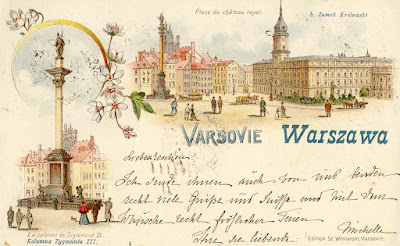 Place du château royal.
b. Zamek Królewski
VARSOVIE Warszawa
Ich rufe Ihnen auch von uns beiden
recht viele Grüße und Küsse und mit dem
Wunsche recht fröhlicher Ferien
Ihre Sie liebende
Michelle
La colonne de Sigismond III.
Kolumna Zygmunta III.
Edition St. Winiarski, Varsovie.